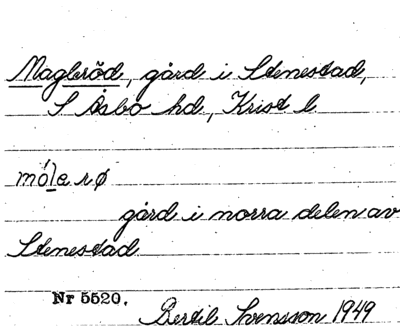 Magleröd, gård i Stenestad,
S Åsbo hd, Krist l
gård i norra delen av
Stenestad
Nr 5520.
Bertil Svensson 1949